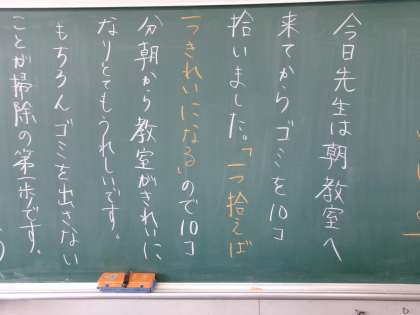 今日先生は朝教室へ
来てからゴミを10コ
拾いました。「一つ拾えば
一つきれいになる」ので10コ
分朝から教室がきれいに
なりとてもうれしいです。
もちろんゴミを出さない
ことが掃除の第一歩です。